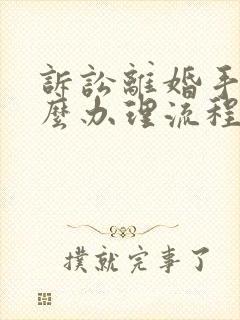 訴訟離婚手
麼办理流程
撲就完事了